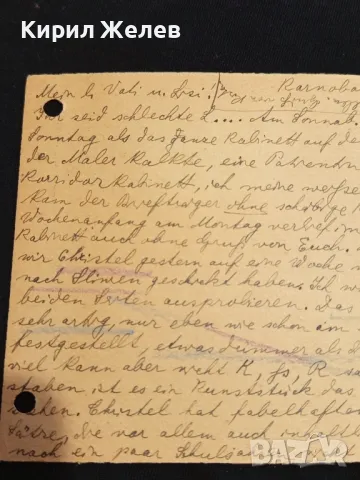 Кирил Желев
Karnoba
Mein l. Vati u. Susi!
Ihr seid schlechte L.... Am Sonnab.
Sonntag als das ganze Kabinett auf de
der Maler kalkte, eine
Korridorkabinett, ich meine
kam der Briefträger ohne
Wochenanfang am Montag verlief
Kabinett auch ohne Gruß von Euch.
wir Christel gestern auf eine Woche
nach Sliwen geschickt haben. Ich
beiden Seiten ausprobieren. Das
sehr artig, nur eben wie schon am
festgestellt, etwas dümmer als
viel kann aber nicht K, R
staben, ist es ein Kunststück das
sehen. Christel hat fabelhafte
Sätze, die vor allem auch inhaltl
nach ein paar Schulj
bazar.bg